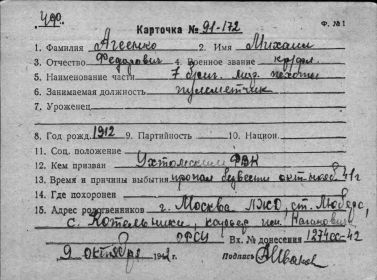 Ф. № 1
Карточка № 91-172
1. Фамилия Агеенко 2. Имя Михаил
3. Отчество Федорович 4. Военное звание кр/фл.
5. Наименование части 7 бриг. мор. пехоты
6. Занимаемая должность пулеметчик
7. Уроженец
8. Год рожд. 1912 9. Партийность 10. Национ.
11. Соц. положение
12. Кем призван Ухтомским РВК
13. Время и причины выбытия пропал безвести октябрь 41 г
14. Где похоронен
15. Адрес родственников г. Москва ЛЖД, ст. Люберц,
с. Котельники, карьер им. Кагановича
9 октября Вх. № донесения 12740с-42
Подпись